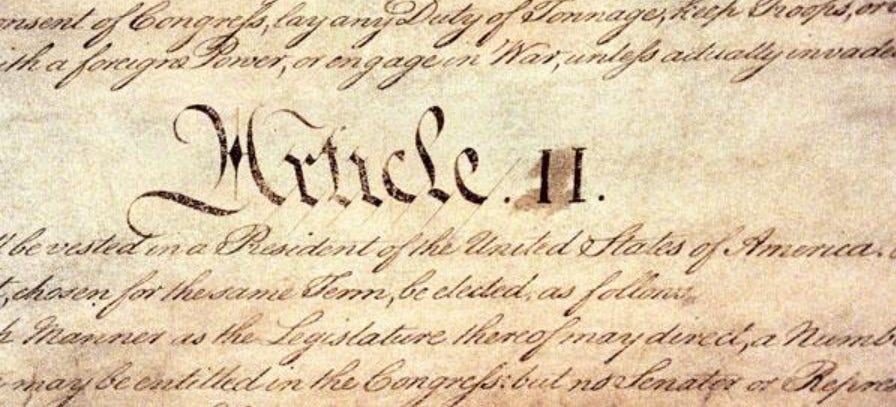 onsent of Congress, lay any Duty of Tonnage, keep Troops, or
ith a foreign Power, or engage in War, unless actually invade
Article. II.
ll be vested in a President of the United States of America.
t, chosen for the same Term, be elected, as follows
h Manner as the Legislature thereof may direct, a Numb
may be entitled in the Congress: but no Senator or Repre